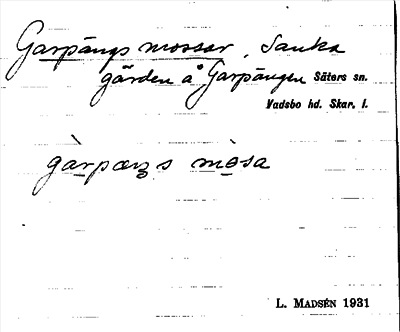 Garpängs mossar, Sanka
gärden å Garpängen Säters sn.
Vadsbo hd. Skar. l.
gàrpæŋs mòsa
L. MADSÉN 1931